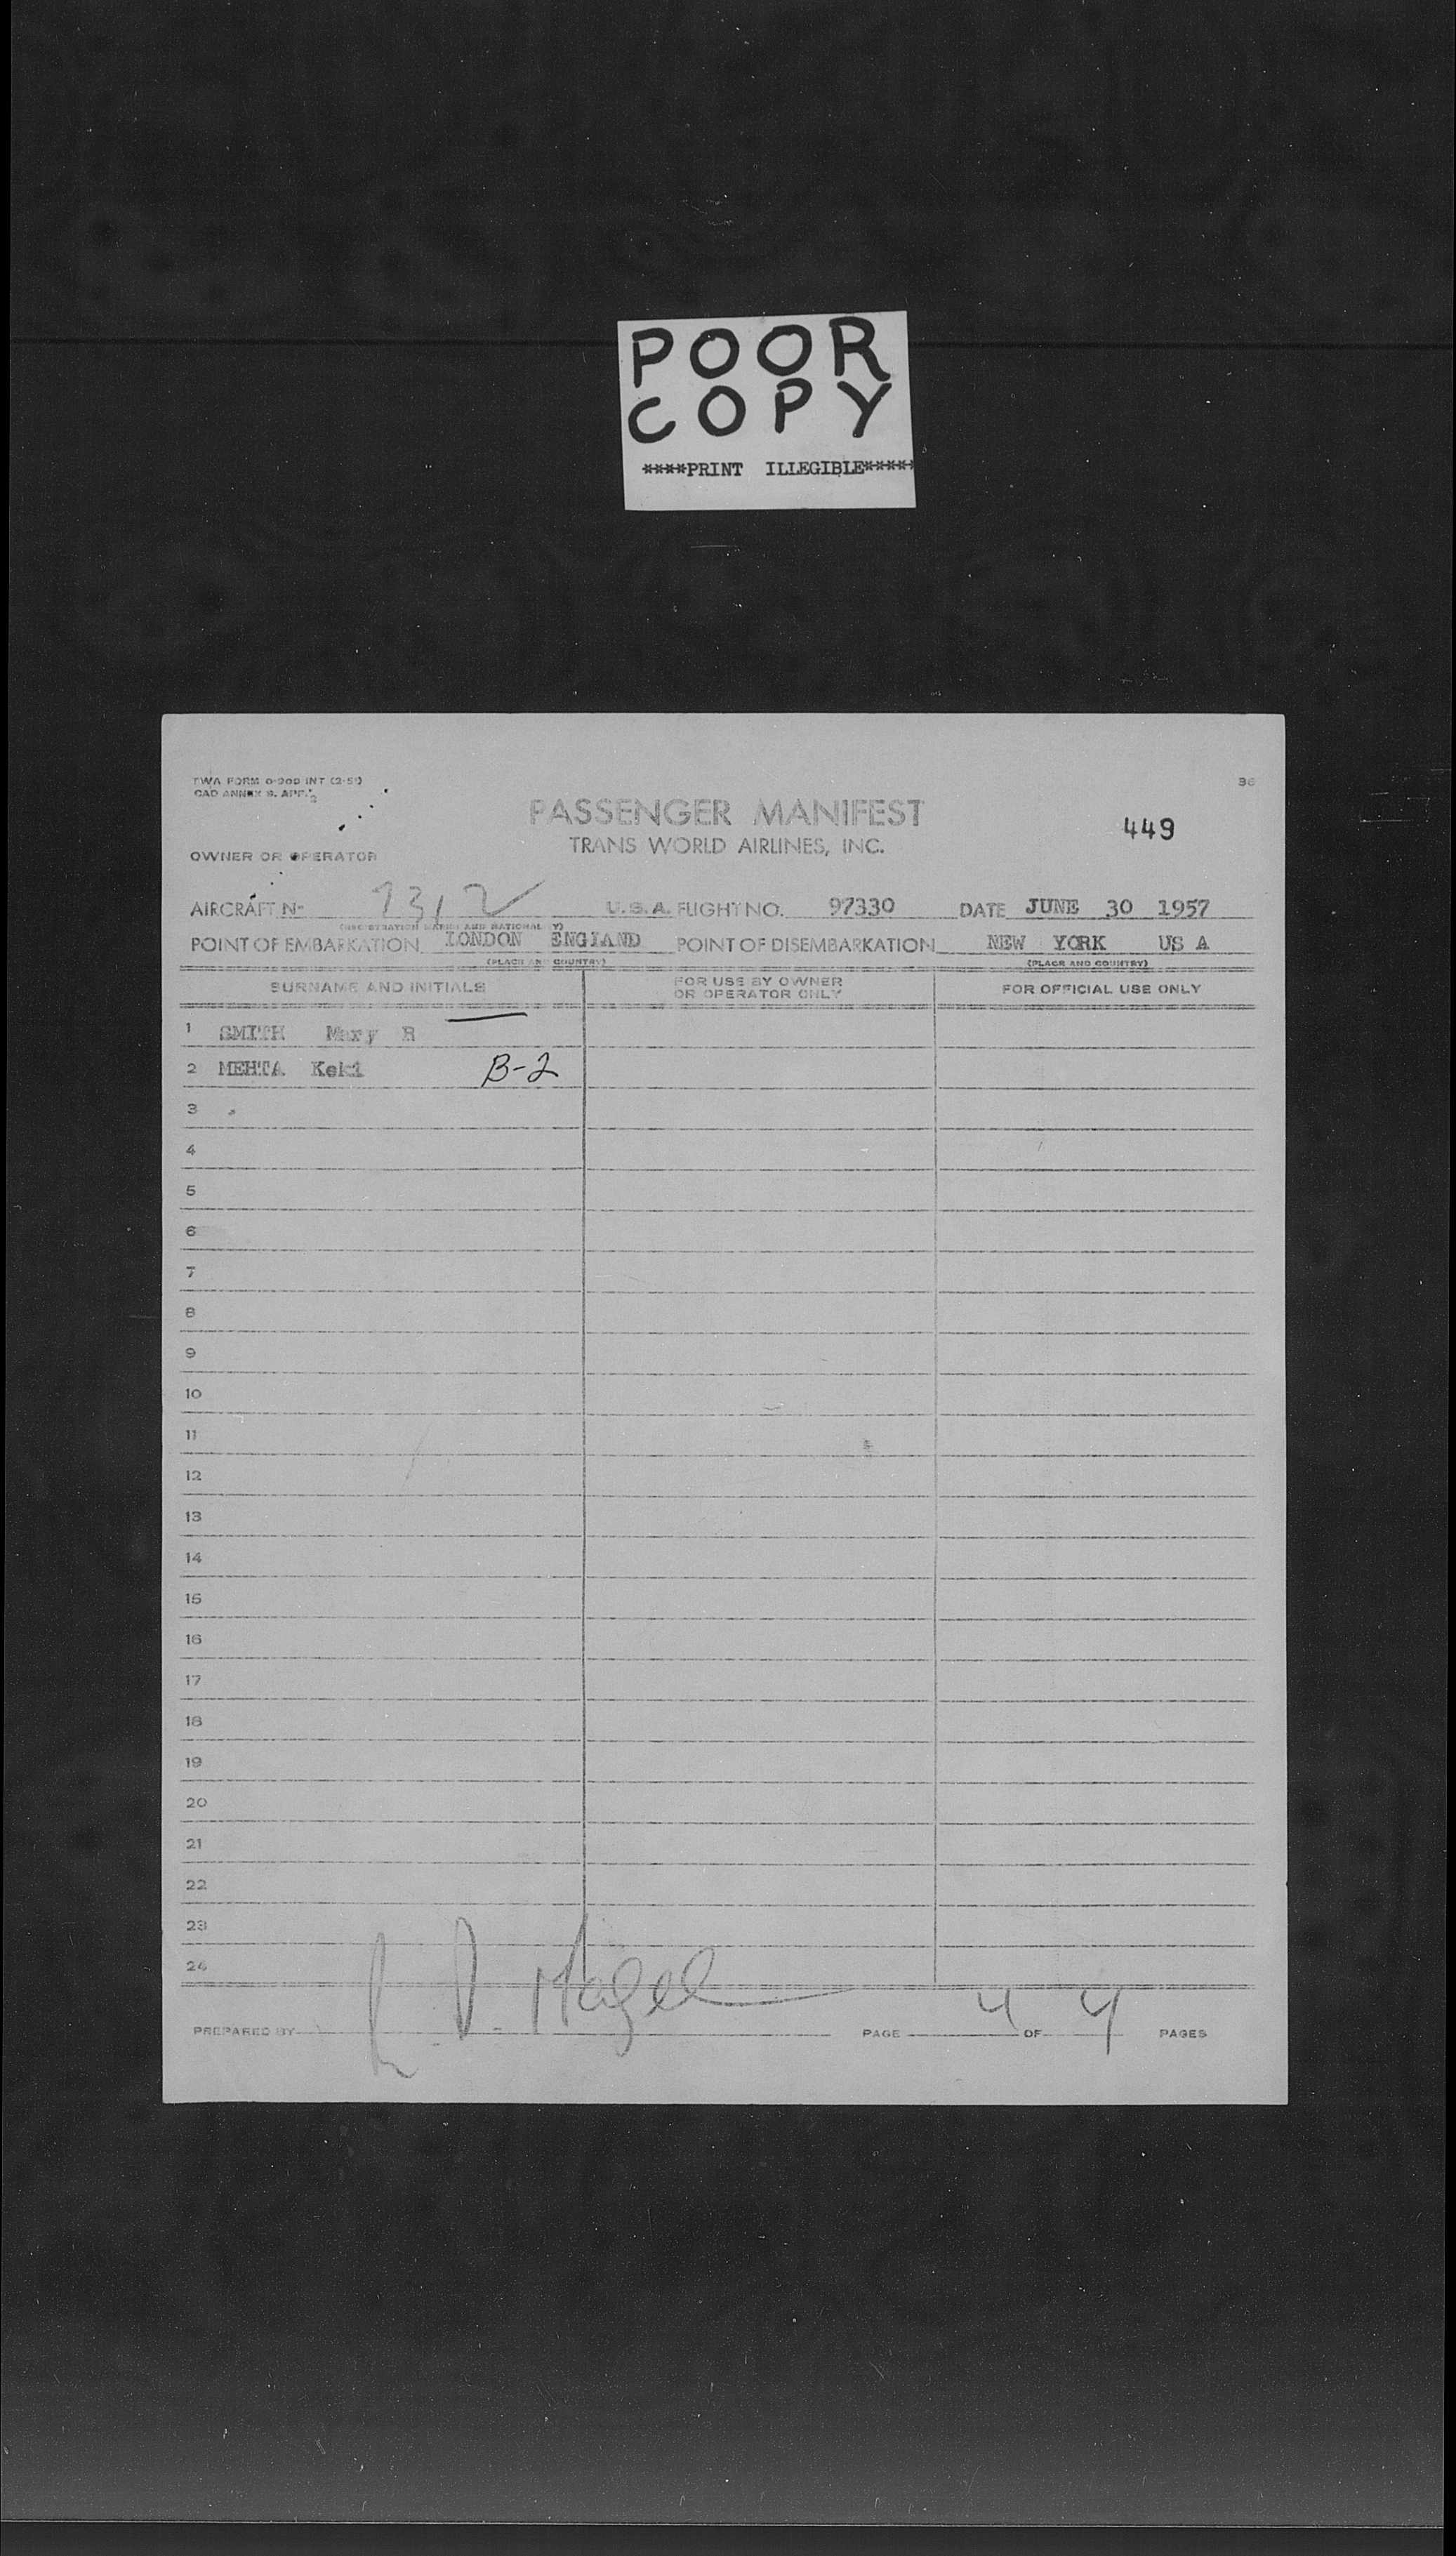 POOR
COPY
****PRINT ILLEGIBLE*****
TWA FORM
36
PASSENGER MANIFEST
449
TRANS WORLD AIRLINES, INC.
OWNER OR OPERATOR
AIRCRAFT No 7312 U.S.A. FLIGHT NO. 97330 DATE JUNE 30 1957
POINT OF EMBARKATION LONDON ENGLAND POINT OF DISEMBARKATION NEW YORK US A
(PLACE AND COUNTRY) (PLACE AND COUNTRY)
SURNAME AND INITIALS FOR USE BY OWNER OR OPERATOR ONLY FOR OFFICIAL USE ONLY
1 SMITH Mary R
2 MEHTA Keki B-2
3
4
5
6
7
8
9
10
11
12
13
14
15
16
17
18
19
20
21
22
23
24
PREPARED BY PAGE 4 OF 4 PAGES